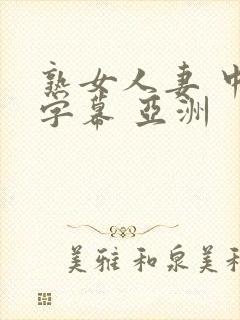 熟女人妻 中
字幕 亞洲
美雅 和泉美和